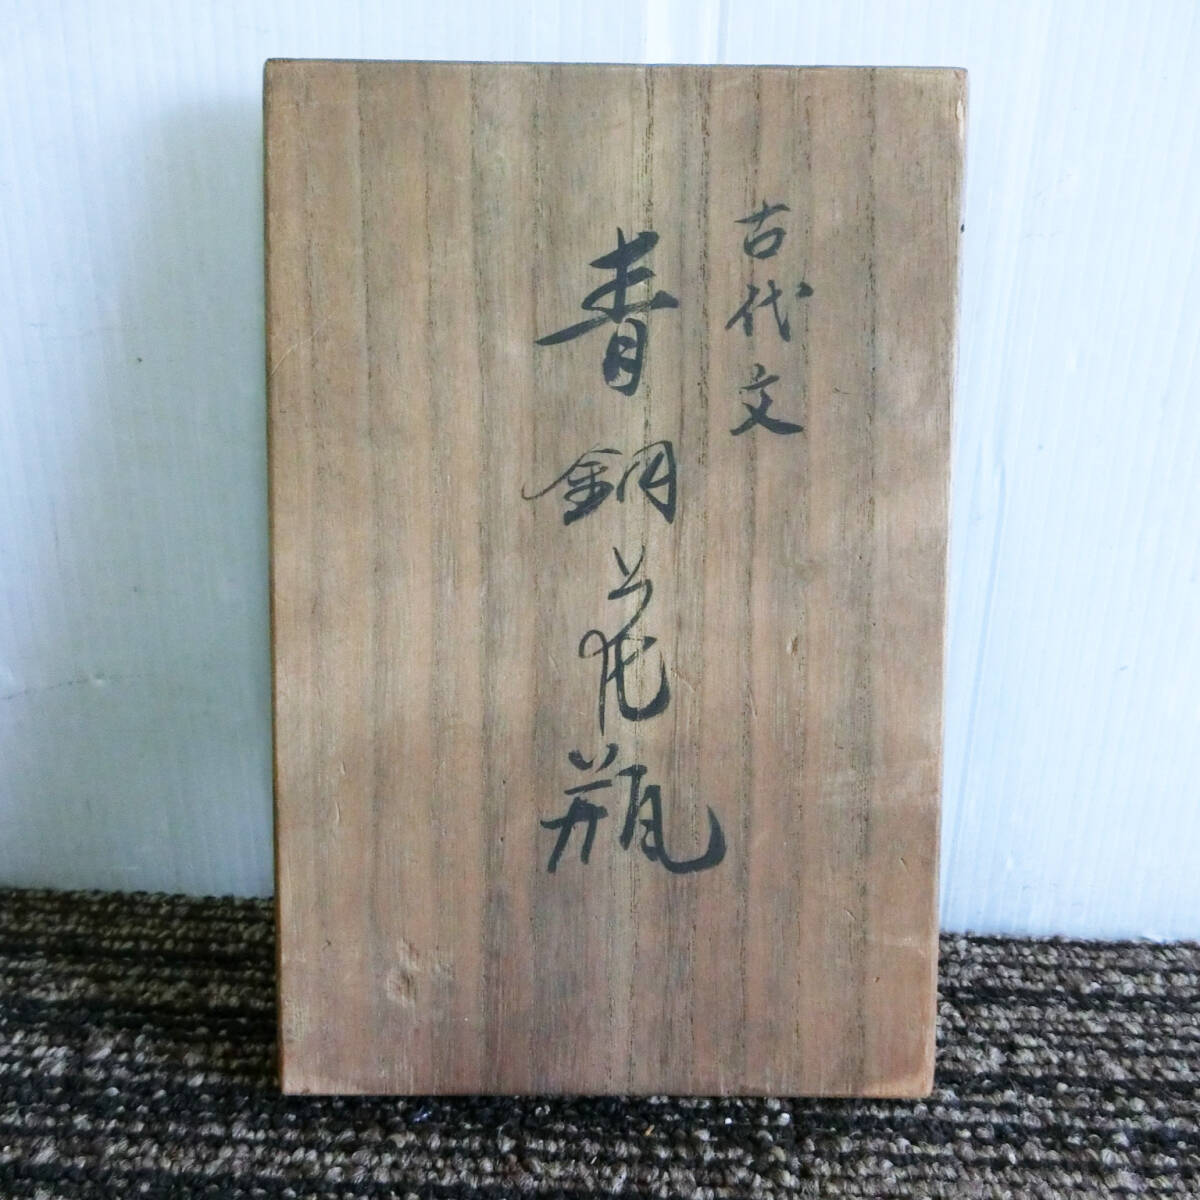 古代文
青銅花瓶